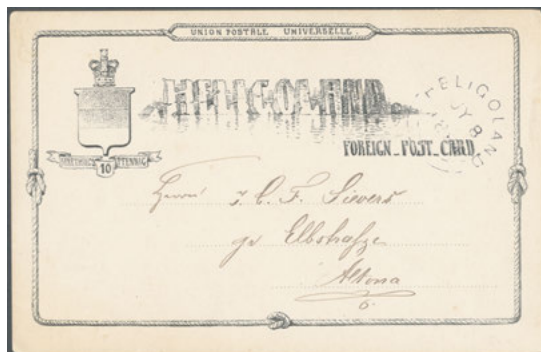 UNION POSTALE UNIVERSELLE.
HELIGOLAND
HELIGOLAND
FOREIGN POST CARD
FARTHINGS 10 PFENNIG
Herrn J. C. F. Sievers
gr Elbstraße
Altona